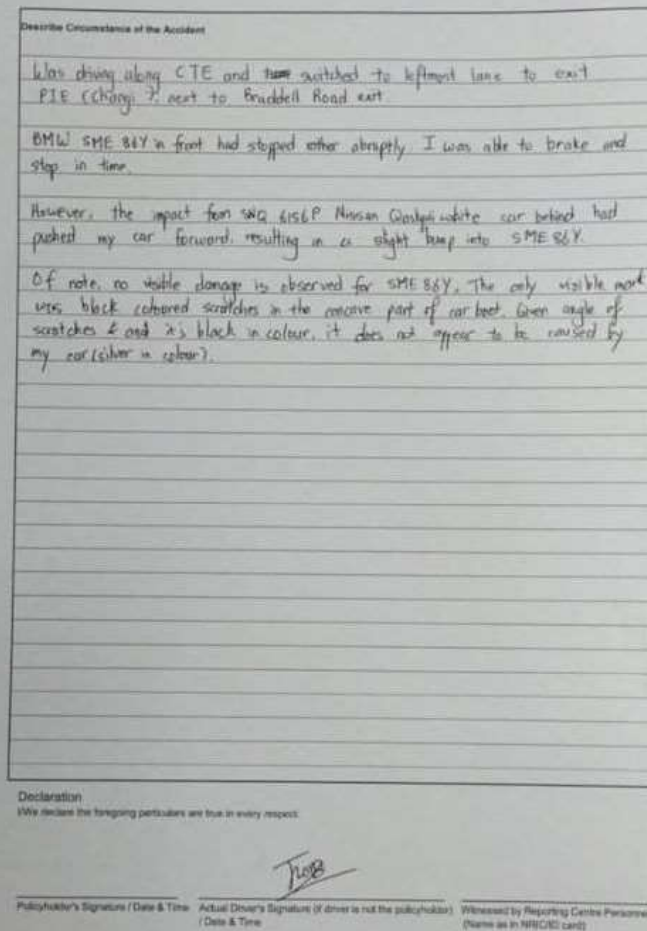 Describe Circumstance of the Accident
Was driving along CTE and switched to leftmost lane to exit
PIE (Changi), next to Braddell Road exit.
BMW SME 86Y in front had stopped rather abruptly. I was able to brake and
stop in time.
However, the impact from 6156P Nissan Qashqai white car behind had
pushed my car forward, resulting in a slight bump into SME 86Y.
Of note, no visible damage is observed for SME 86Y. The only visible mark
was black coloured scratches in the concave part of car boot. Given angle of
scratches & and its black in colour, it does not appear to be caused by
my car (silver in colour).
Declaration
I/We declare the foregoing particulars are true in every respect.
Policyholder's Signature / Date & Time
Actual Driver's Signature (if driver is not the policyholder)
/ Date & Time
Witnessed by Reporting Centre Personnel
(Name as in NRIC/ID card)